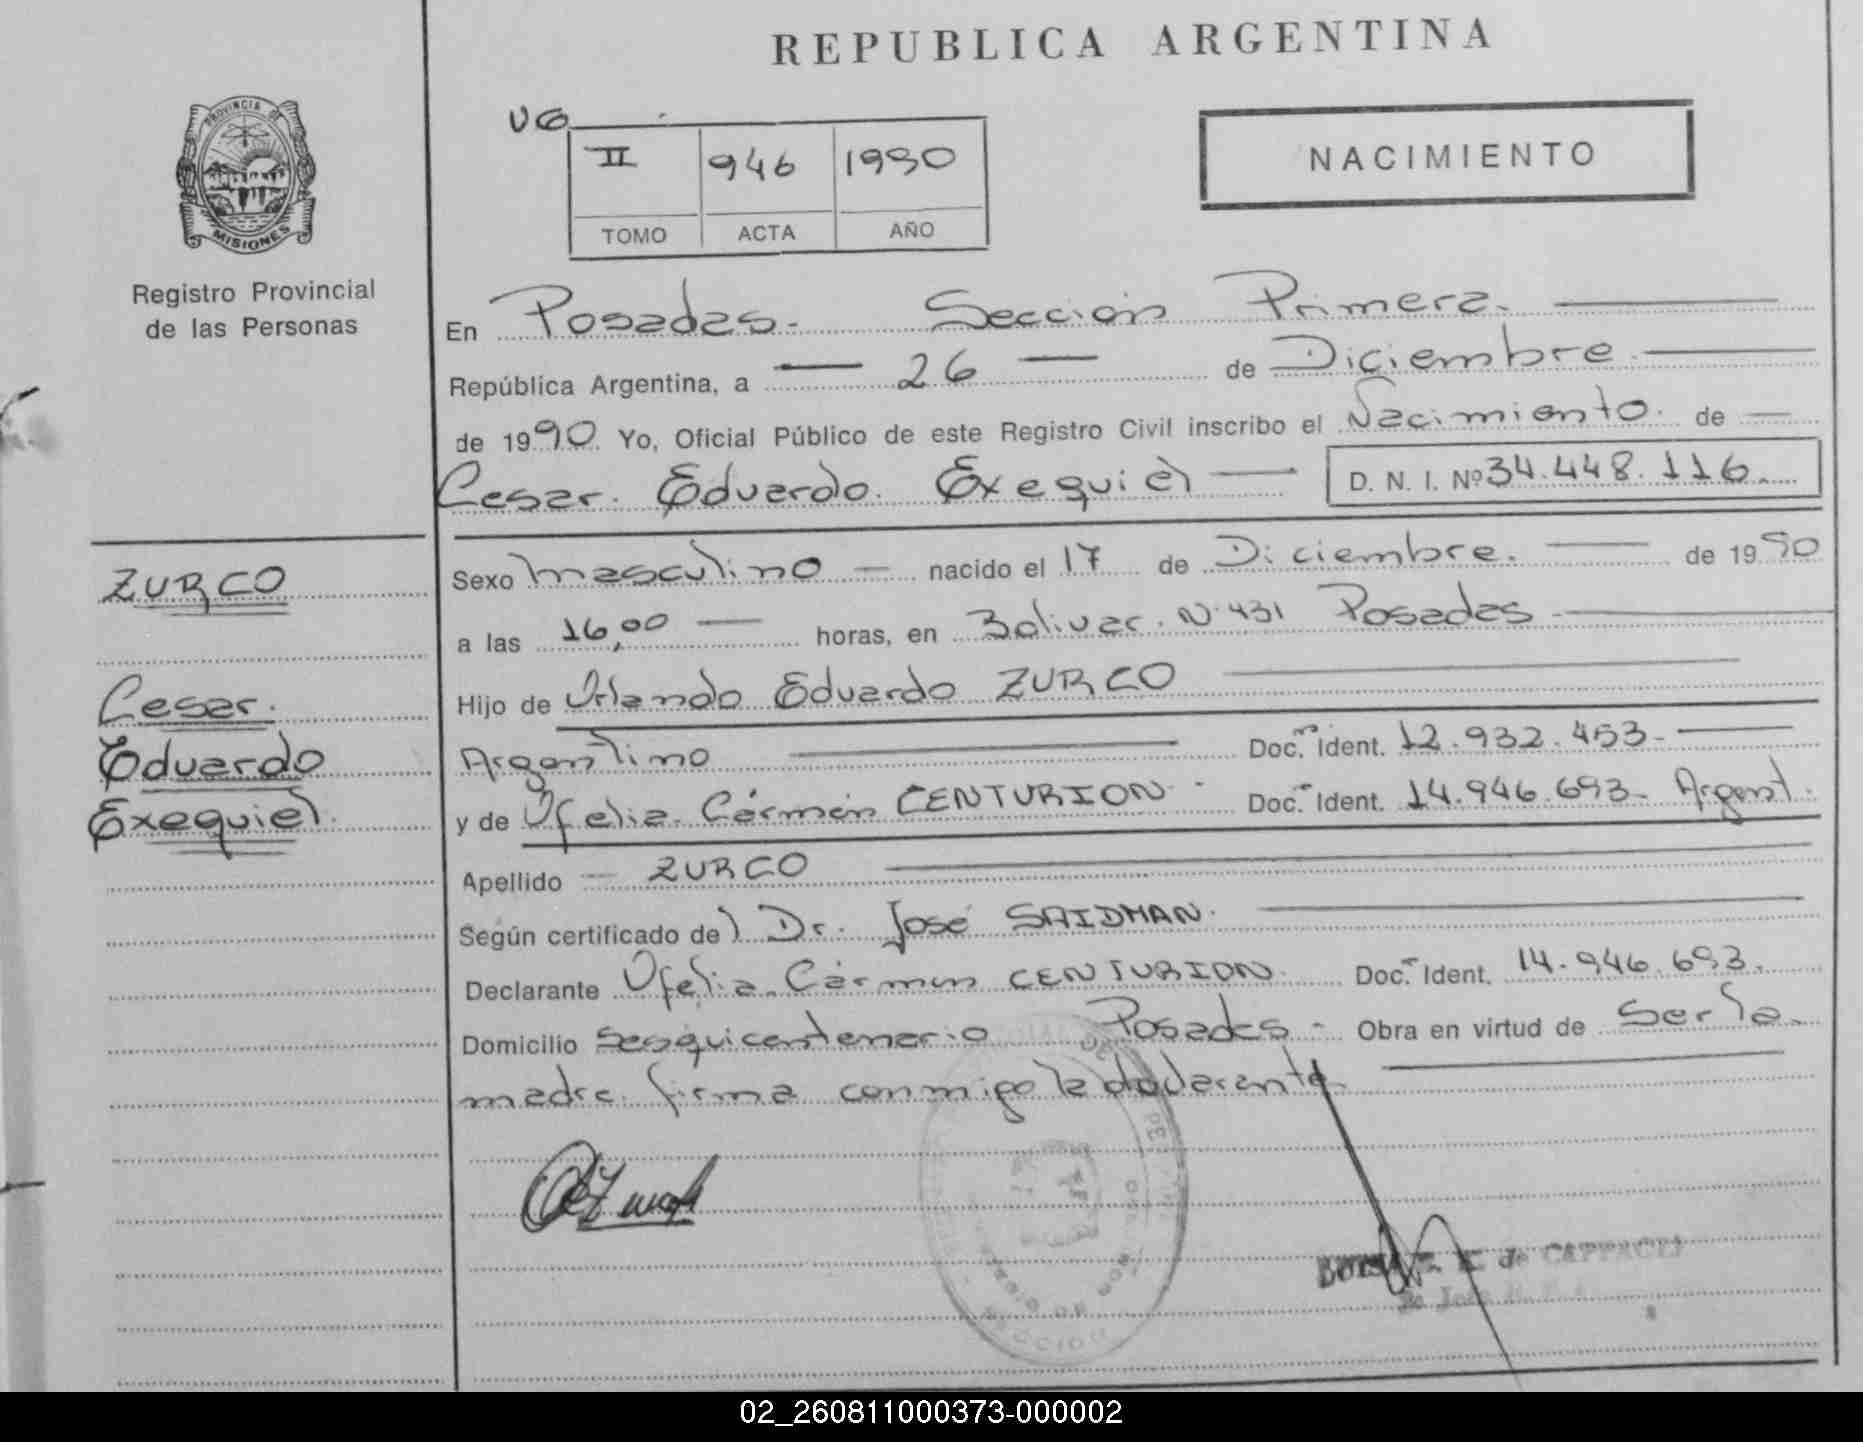 REPUBLICA ARGENTINA
PROVINCIA DE
MISIONES
Registro Provincial
de las Personas
UG
II 946 1990
TOMO ACTA AÑO
NACIMIENTO
En Posadas- Sección Primera.
República Argentina, a — 26 — de Diciembre.
de 1990. Yo, Oficial Público de este Registro Civil inscribo el Nacimiento. de —
Cesar. Eduardo. Exequiel — D. N. I. Nº 34.448.116.
ZURCO
Cesar.
Eduardo
Exequiel.
Sexo masculino — nacido el 17 de Diciembre. — de 1990
a las 16,00 — horas, en Bolivar. Nº 431 Posadas -
Hijo de Orlando Eduardo ZURCO
Argentino — Doc. Ident. 12.932.453-
y de Ofelia Cármen CENTURION - Doc. Ident. 14.946.693- Argent.
Apellido — ZURCO
Según certificado del Dr. José SAIDMAN.
Declarante Ofelia Cármen CENTURION. Doc. Ident. 14.946.693.
Domicilio Sesquicentenario Posadas - Obra en virtud de Ser la
madre. firma conmigo la declarante.
de CAPPACLI
02_260811000373-000002